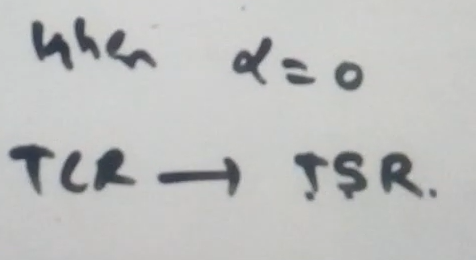 When α = 0
TCR → TSR.